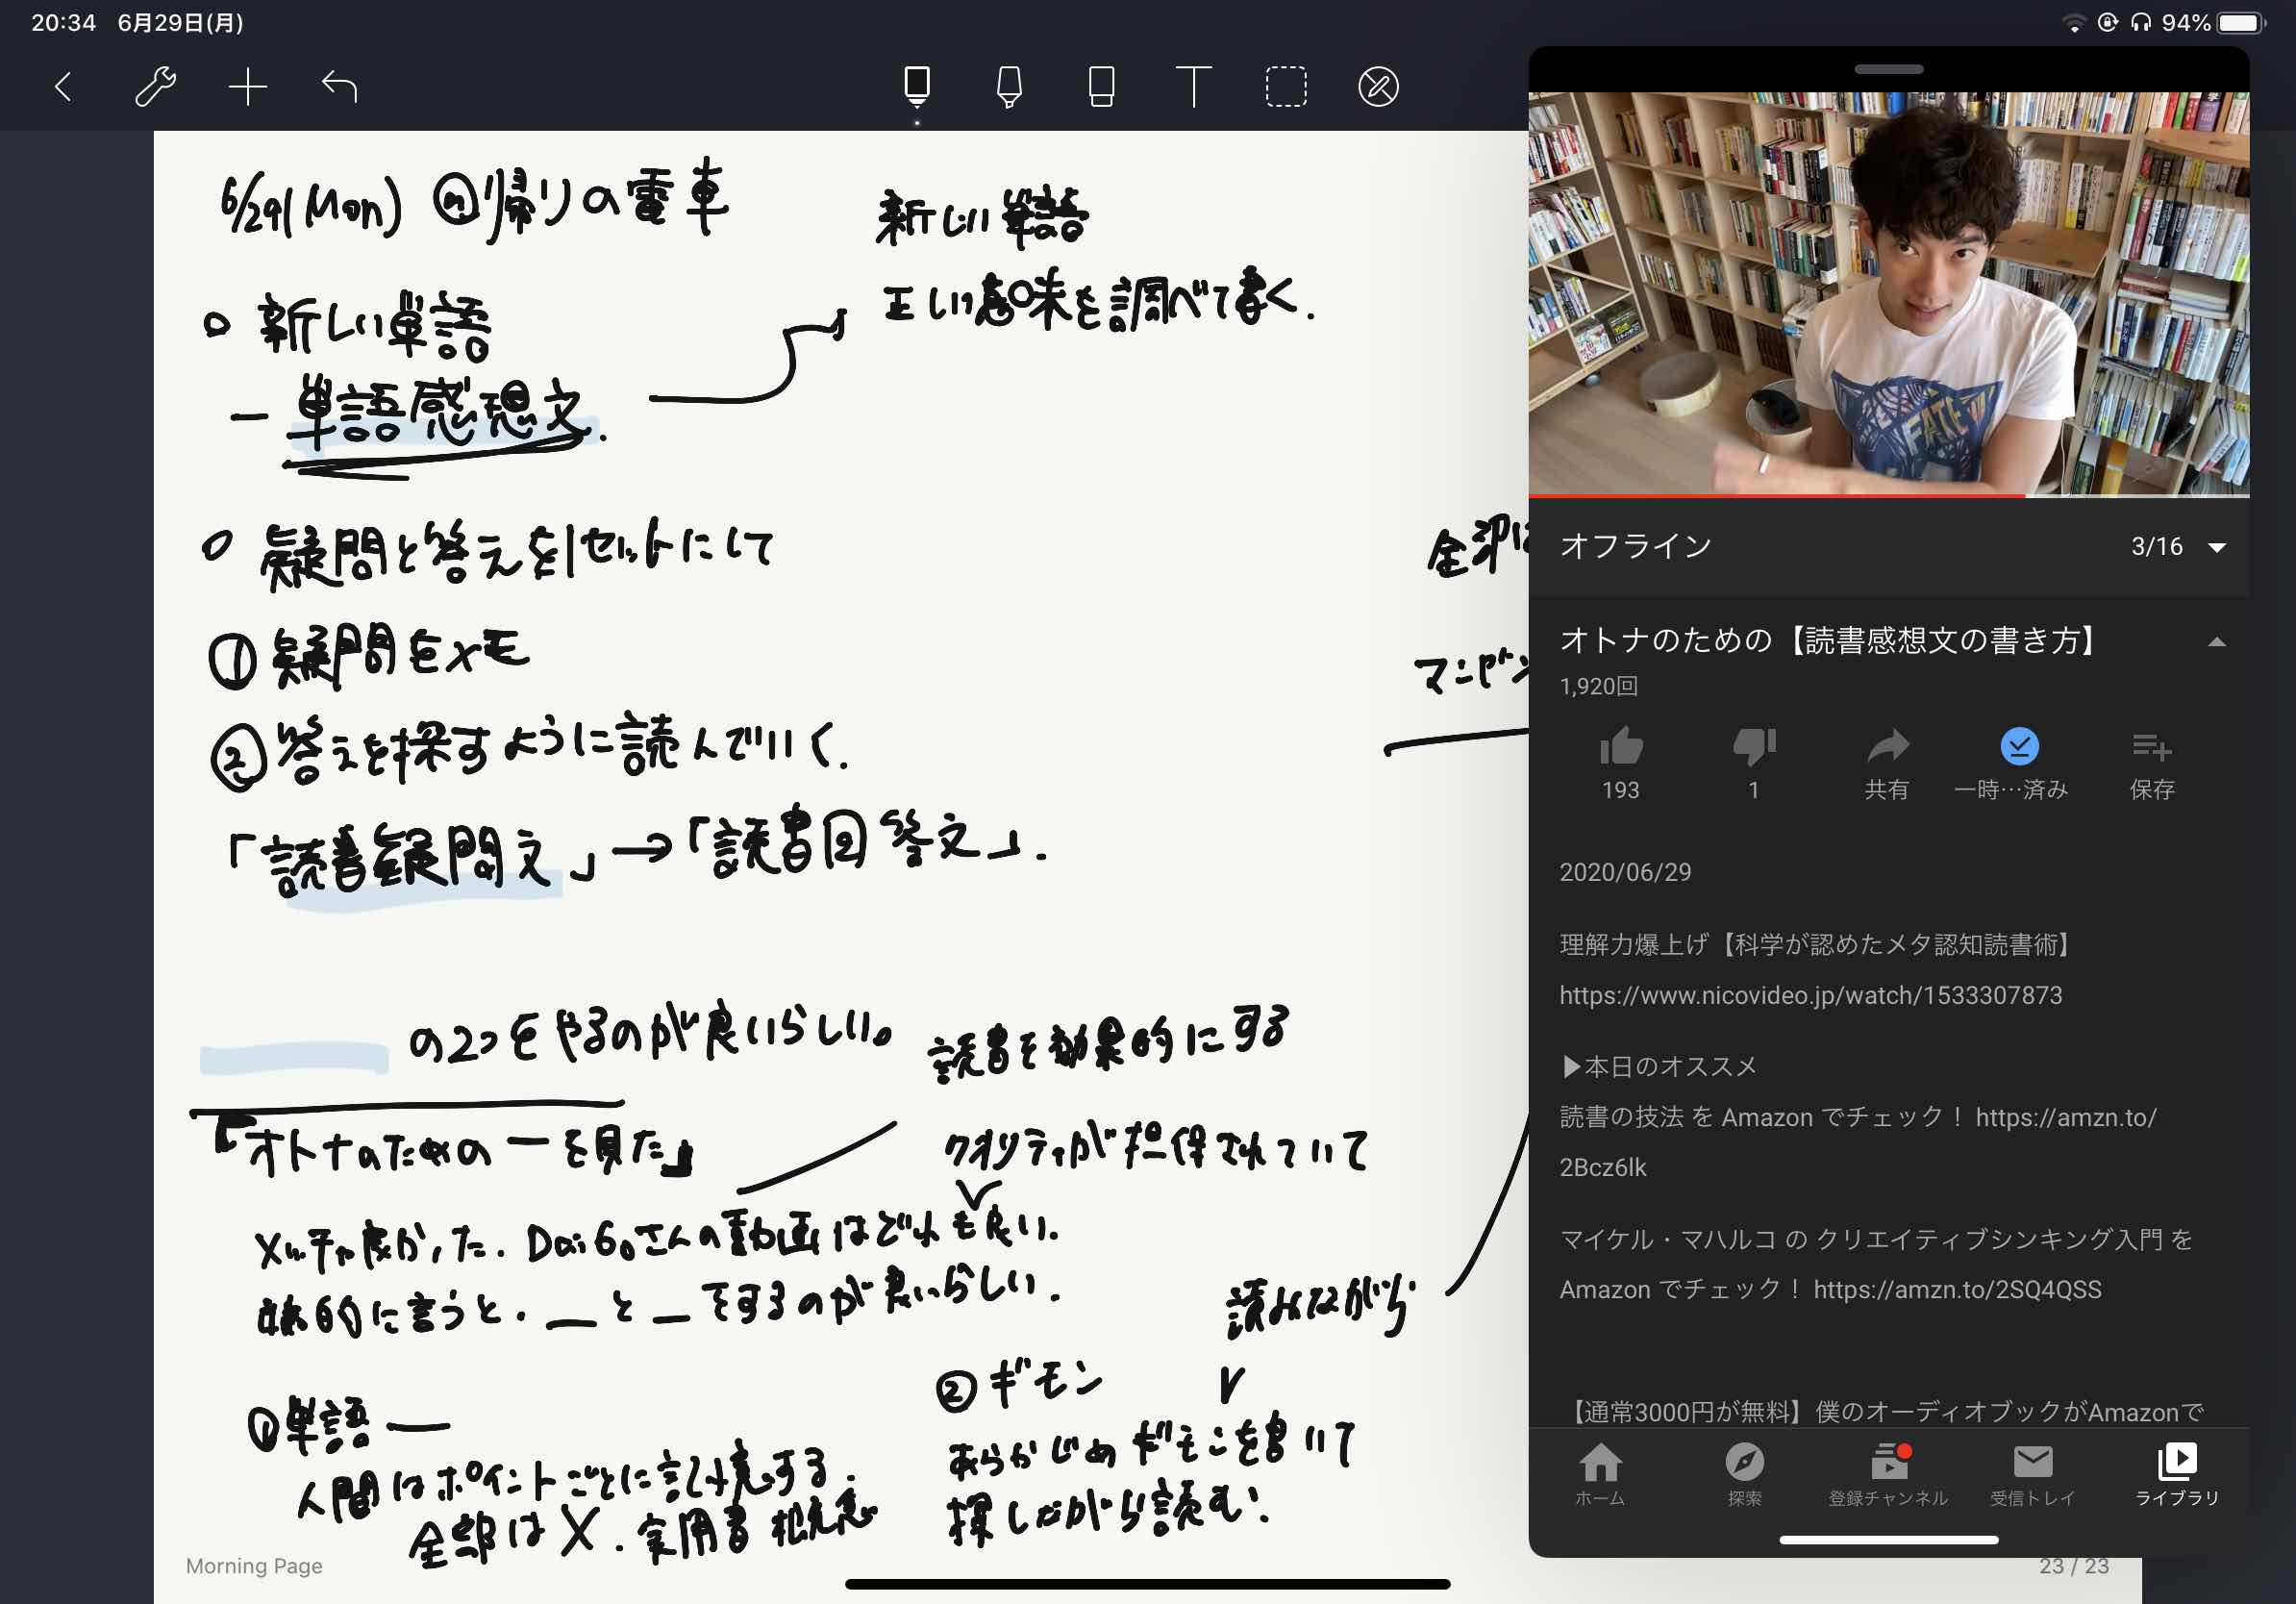 20:34 6月29日(月)
94%
6/29(Mon) @帰りの電車
新しい単語
正しい意味を調べて書く.
○ 新しい単語
ー 単語感想文.
○ 疑問と答えを1セットにして
① 疑問をメモ
② 答えを探すように読んでいく.
「読書疑問文」→「読書回答文」.
の2つをやるのが良いらしい。
読書を効果的にする
『オトナのための ー を見た』
クオリティが担保されていて
メッチャ良かった. DaiGoさんの動画はどれも良い.
的に言うと. __ と __ をするのが良いらしい.
読みながら
①単語 ー
人間はポイントごとに記憶する.
全部は X. 実用書
② ギモン
あらかじめギモンを書いて
探しながら読む.
全部
マニ
Morning Page
23 / 23
FATE
オフライン
3/16
オトナのための【読書感想文の書き方】
1,920回
193
1
共有
一時…済み
保存
2020/06/29
理解力爆上げ【科学が認めたメタ認知読書術】
https://www.nicovideo.jp/watch/1533307873
▶本日のオススメ
読書の技法 を Amazon でチェック！ https://amzn.to/
2Bcz6lk
マイケル・マハルコ の クリエイティブシンキング入門 を
Amazon でチェック！ https://amzn.to/2SQ4QSS
【通常3000円が無料】僕のオーディオブックがAmazonで
ホーム
探索
登録チャンネル
受信トレイ
ライブラリ